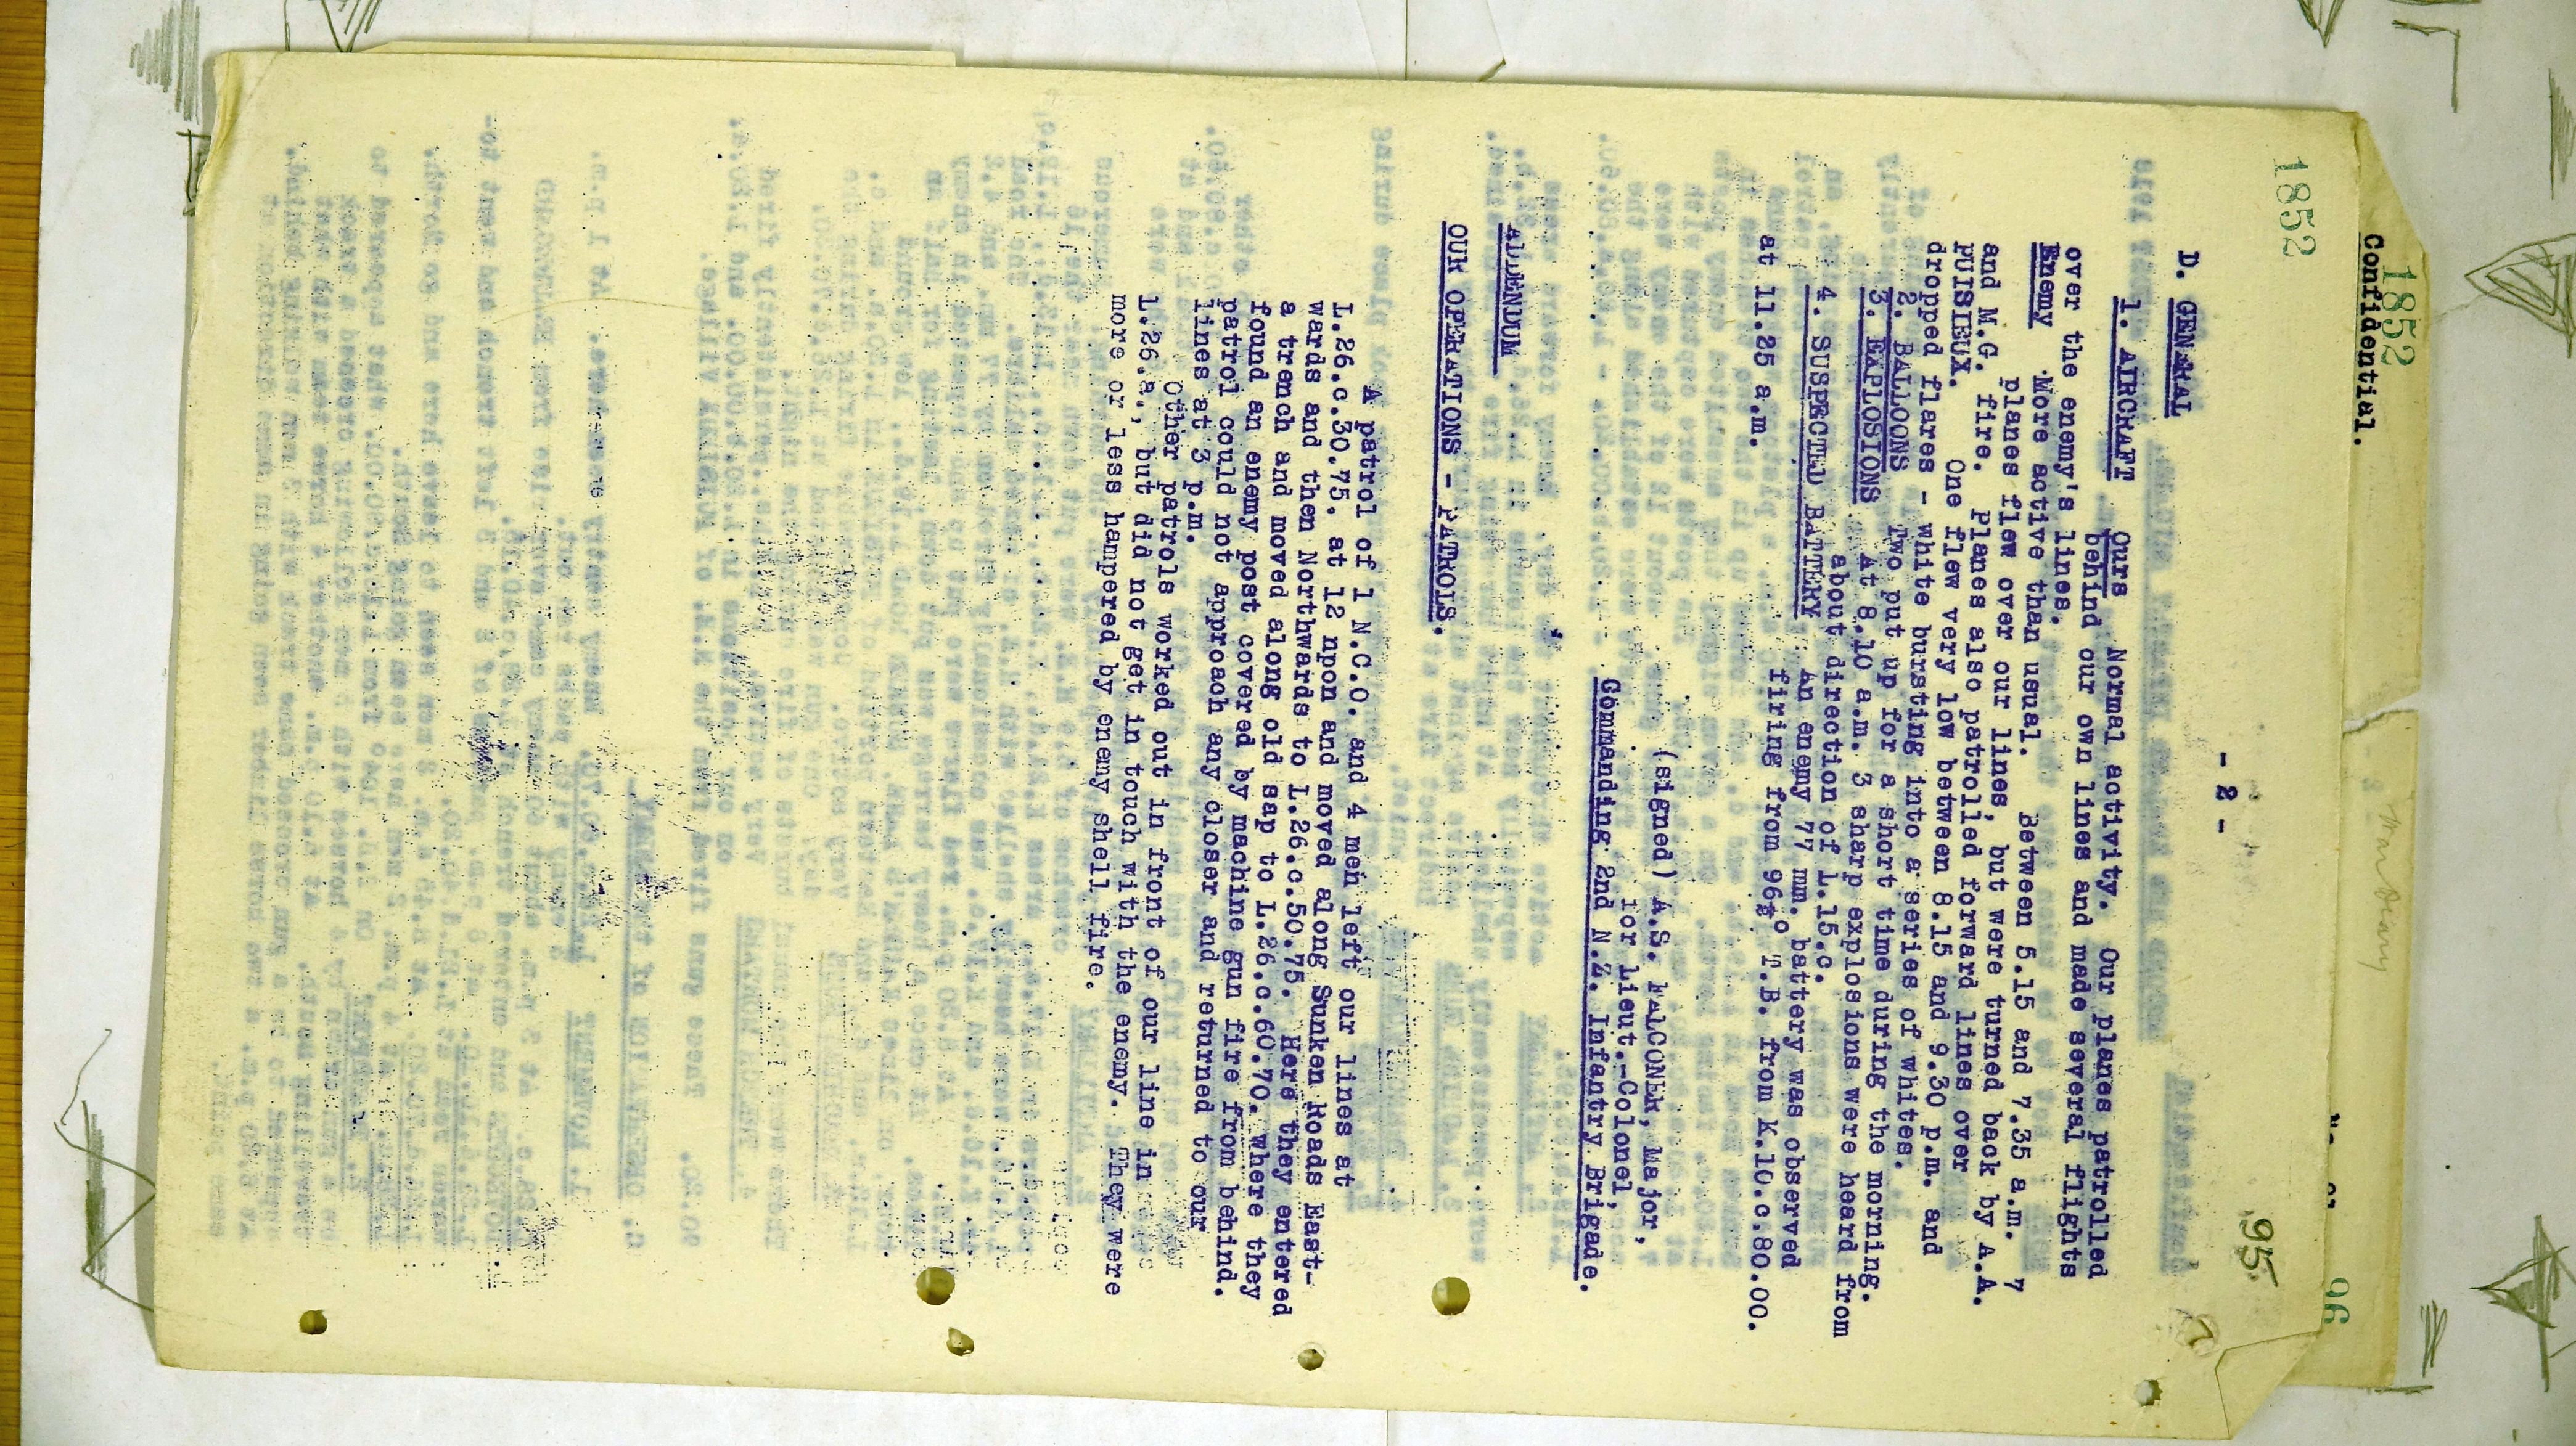 1852
Confidential.
96
War Diary
1852
95.
- 2 -
D. GENERAL
1. AIRCRAFT Ours Normal activity. Our planes patrolled
behind our own lines and made several flights
over the enemy's lines.
Enemy More active than usual. Between 5.15 and 7.35 a.m. 7
planes flew over our lines, but were turned back by A.A.
and M.G. fire. Planes also patrolled forward lines over
PUISIEUX. One flew very low between 8.15 and 9.30 p.m. and
dropped flares - white bursting into a series of whites.
2. BALLOONS Two put up for a short time during the morning.
3. EXPLOSIONS At 8.10 a.m. 3 sharp explosions were heard from
about direction of L.15.c.
4. SUSPECTED BATTERY An enemy 77 mm. battery was observed
firing from 96½° T.B. from K.10.c.80.00.
at 11.25 a.m.
(signed) A.S. FALCONER, Major,
for Lieut.-Colonel,
Commanding 2nd N.Z. Infantry Brigade.
ADDENDUM
OUR OPERATIONS - PATROLS.
A patrol of 1 N.C.O. and 4 men left our lines at
L.26.c.30.75. at 12 npon and moved along Sunken Roads East-
wards and then Northwards to L.26.c.50.75. Here they entered
a trench and moved along old sap to L.26.c.60.70. where they
found an enemy post covered by machine gun fire from behind.
patrol could not approach any closer and returned to our
lines at 3 p.m.
Other patrols worked out in front of our line in
L.26.a., but did not get in touch with the enemy. They were
more or less hampered by enemy shell fire.